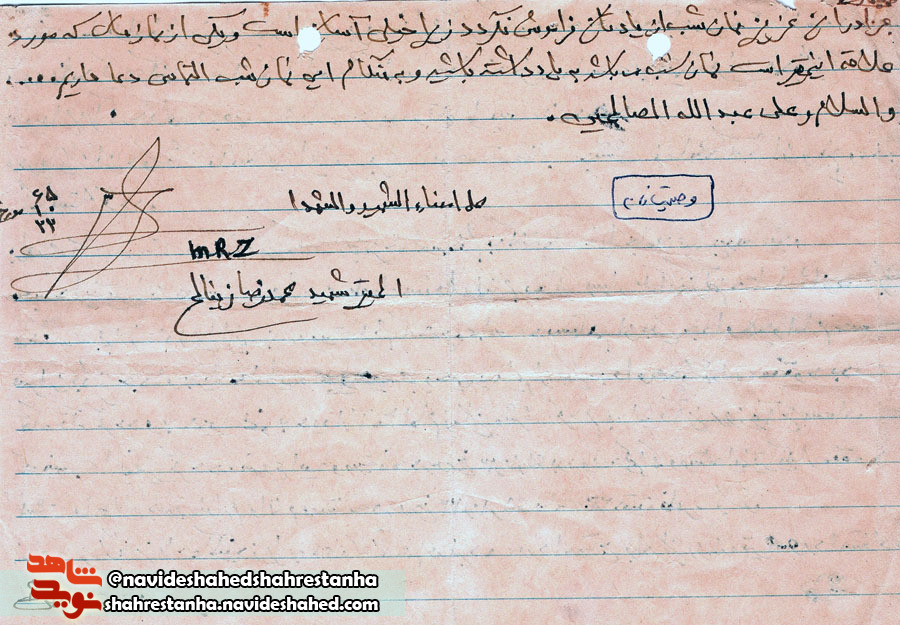 برادران عزیز نماز شب از یادتان فراموش نگردد زیرا خیلی آسان است و یکی از نمازهای که مورد
علاقه است نماز شب می باشد به یاد داشته باشید و به هنگام این نماز شب التماس دعا داریم....
والسلام و علی عبدالله الصالحین.
وصیت نامه
محل امضاء الشهید والشهدا
مورخ
۶۵
۱۰
۲۳
M.R.Z
الحقیر شهید محمدرضا زینالی
شاهد
نوید
@navideshahedshahrestanha
shahrestanha.navideshahed.com